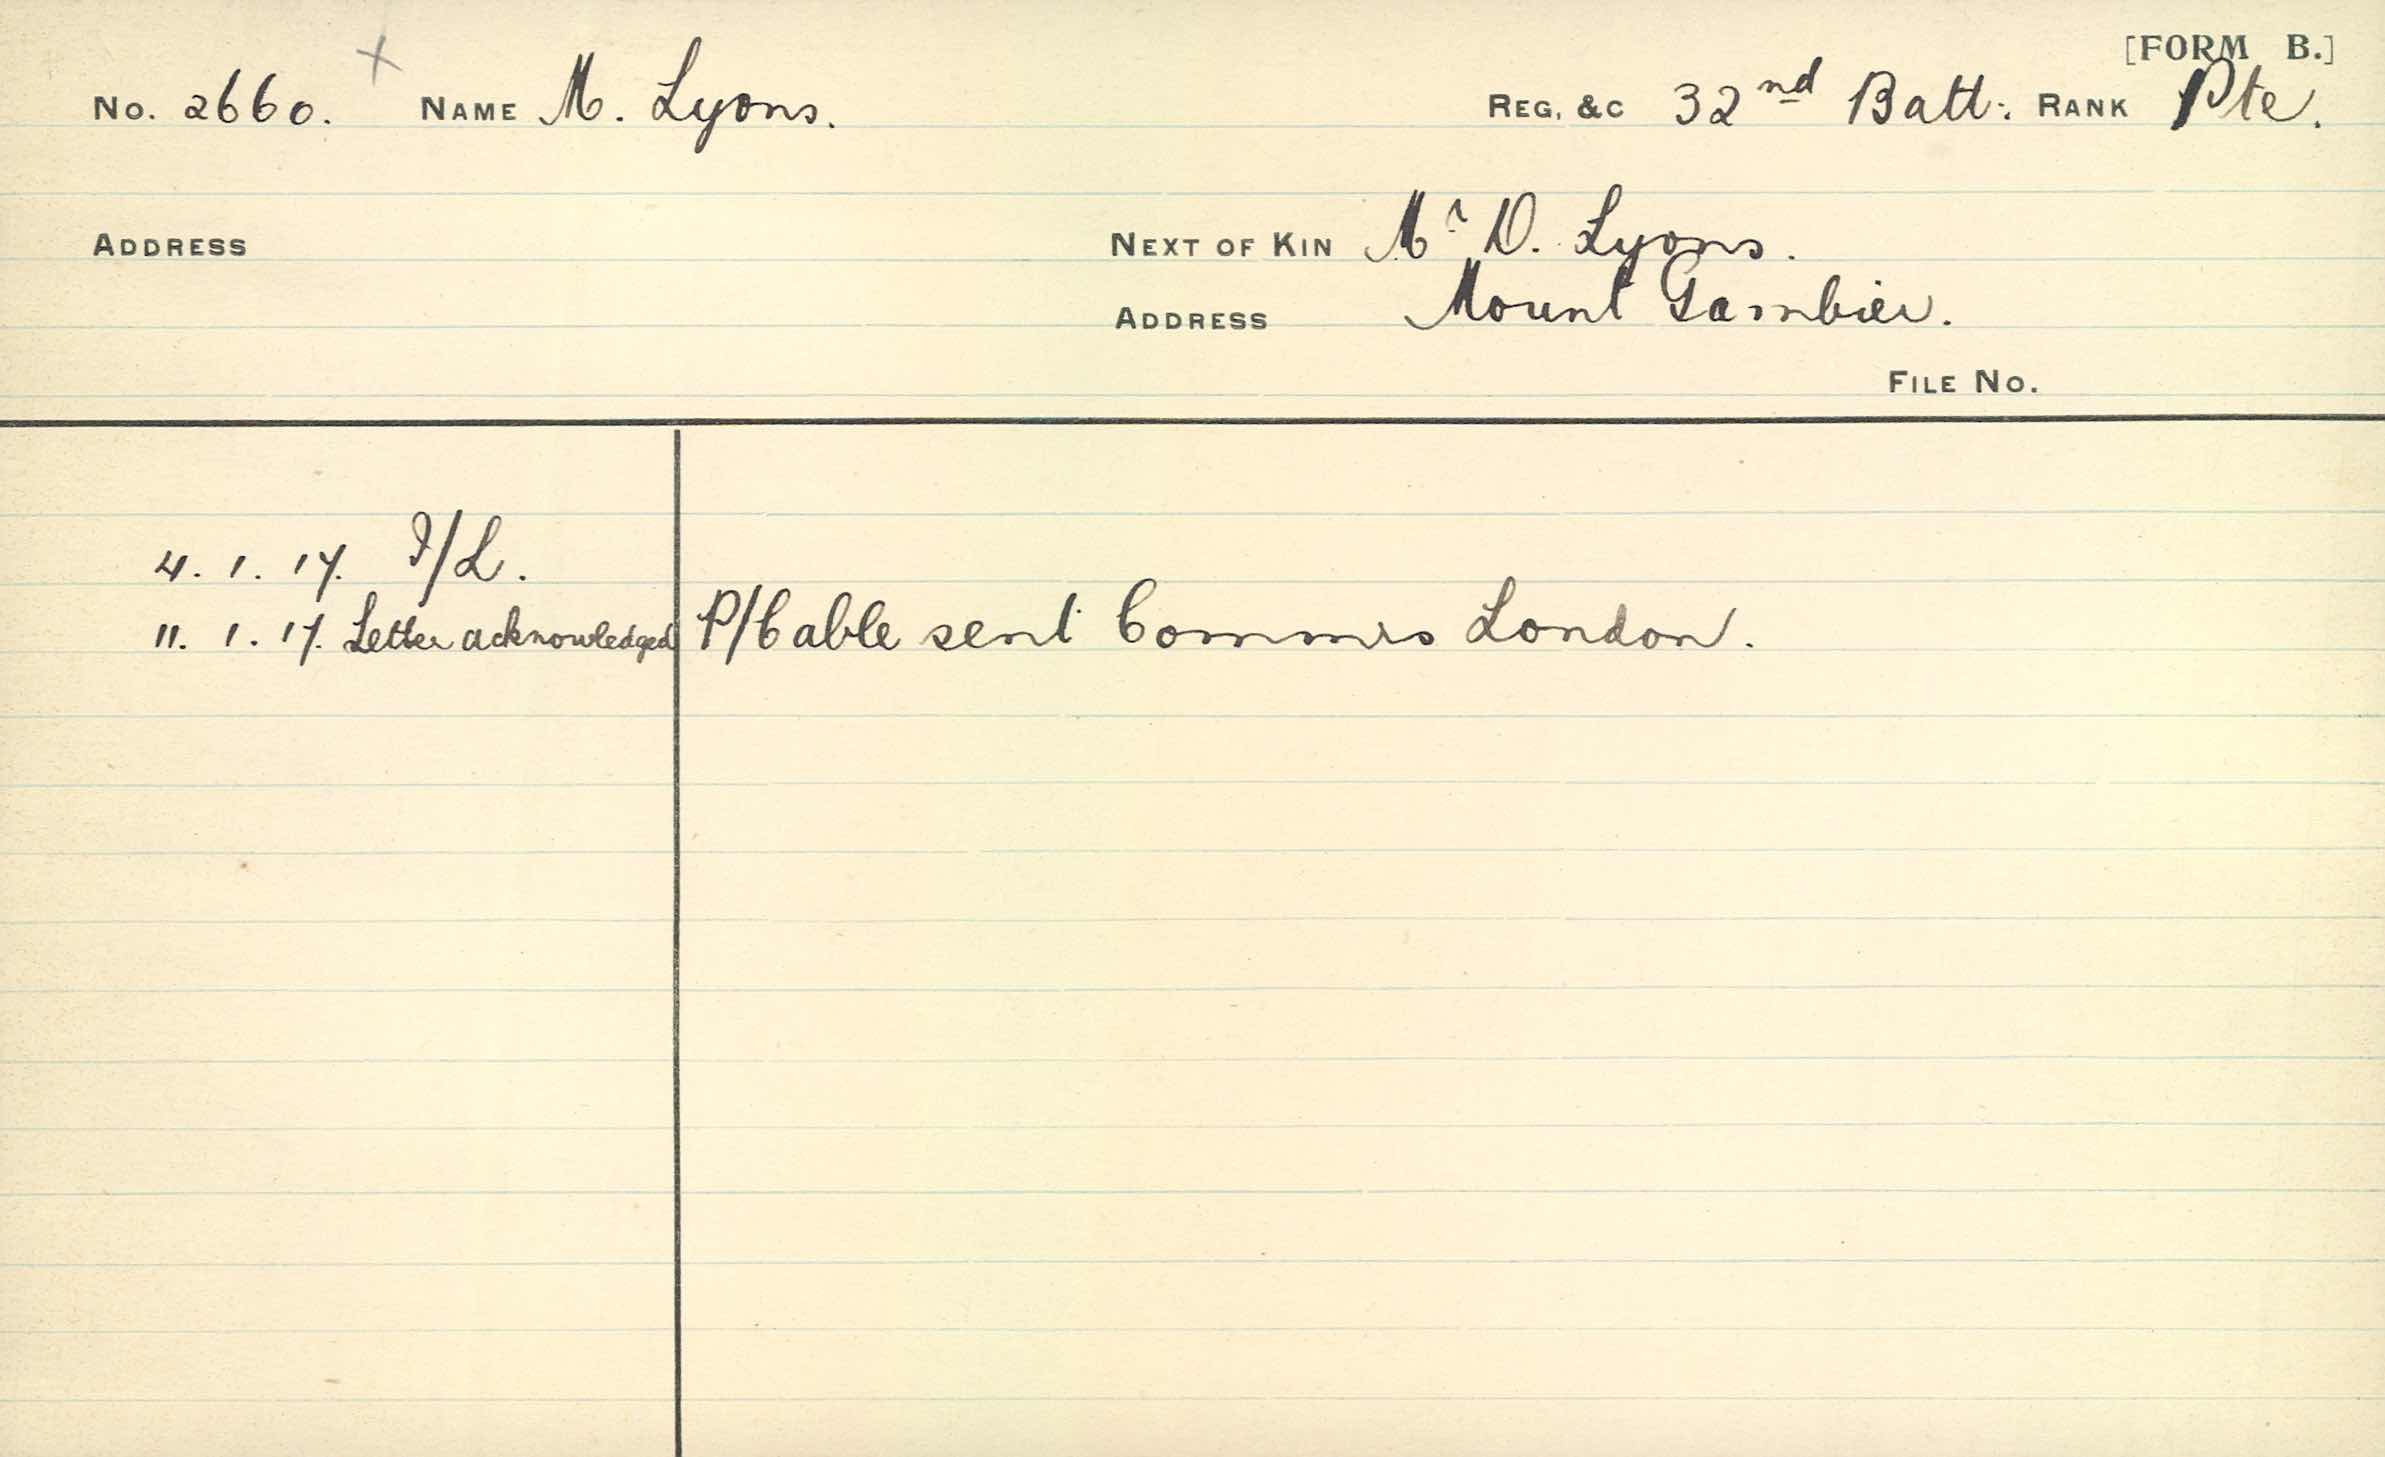 [FORM B.]
No. 2660. x NAME M. Lyons. REG, &C 32nd Batt: RANK Pte.
ADDRESS NEXT OF KIN Mr D. Lyons.
ADDRESS Mount Gambier.
FILE No.
4. 1. 17. I/L.
11. 1. 17. Letter acknowledged P/Cable sent Commrs London.